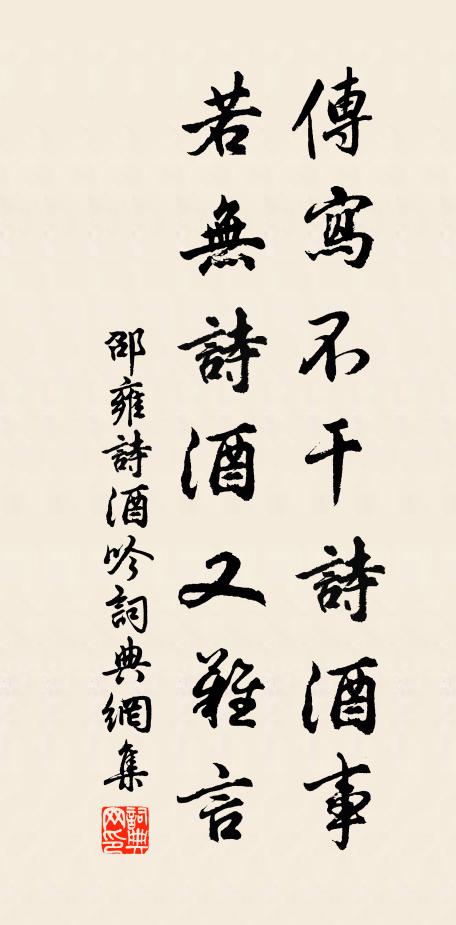 傳寫不干詩酒事
若無詩酒又難言
邵雍詩酒吟詞典網集
詞典网印